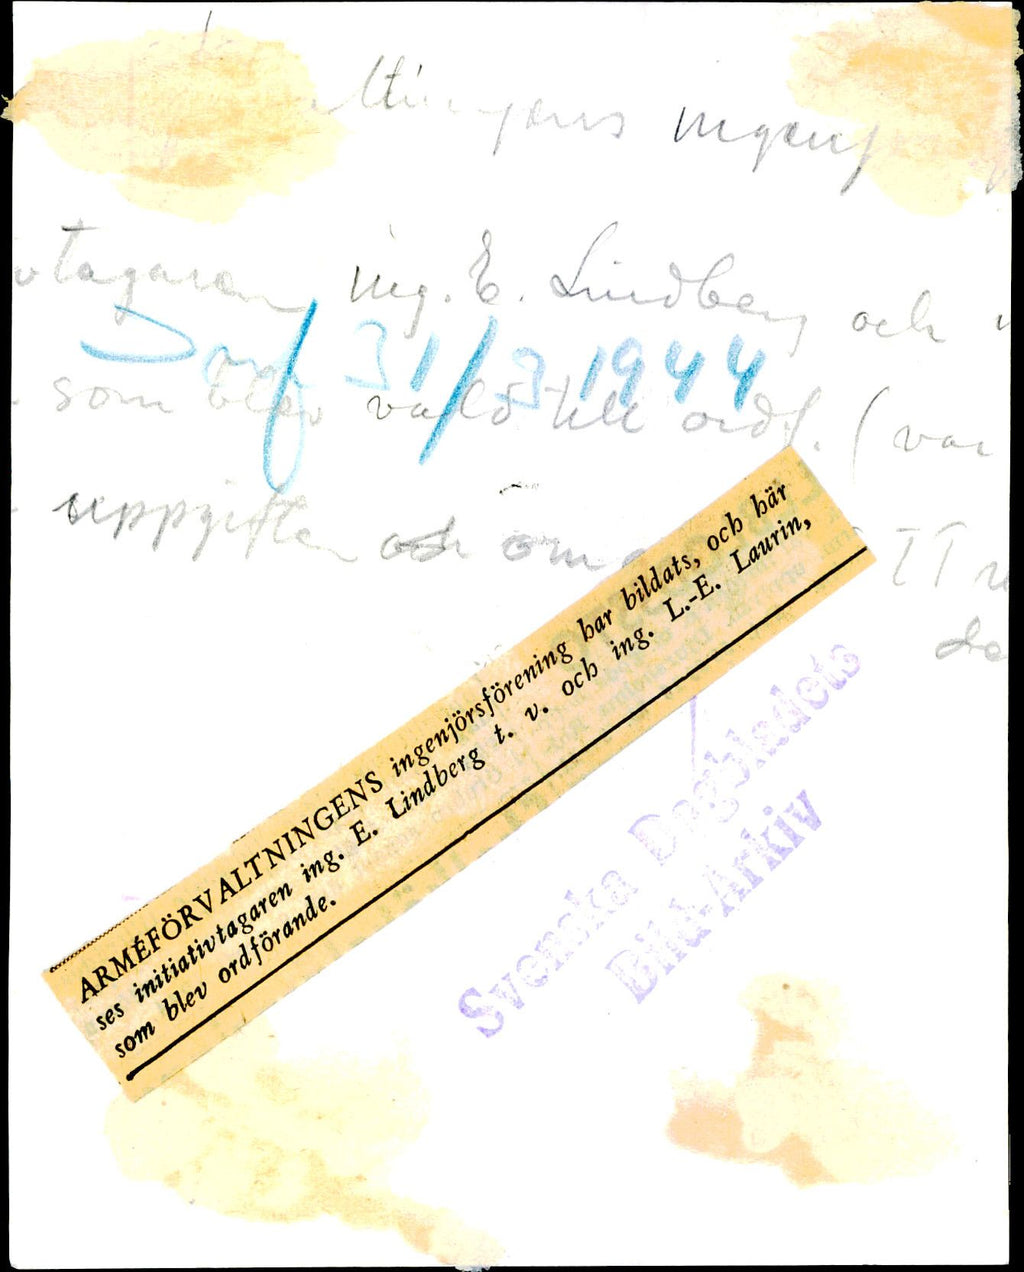 ingenj
tagaren ing. E. Lindberg och
Söf 31/3 1944
som blev vald till ordf. (var
uppgifter och om TT
de
ARMÉFÖRVALTNINGENS ingenjörsförening har bildats, och här
ses initiativtagaren ing. E. Lindberg t. v. och ing. L.-E. Laurin,
som blev ordförande.
Svenska Dagbladets
Bild-Arkiv